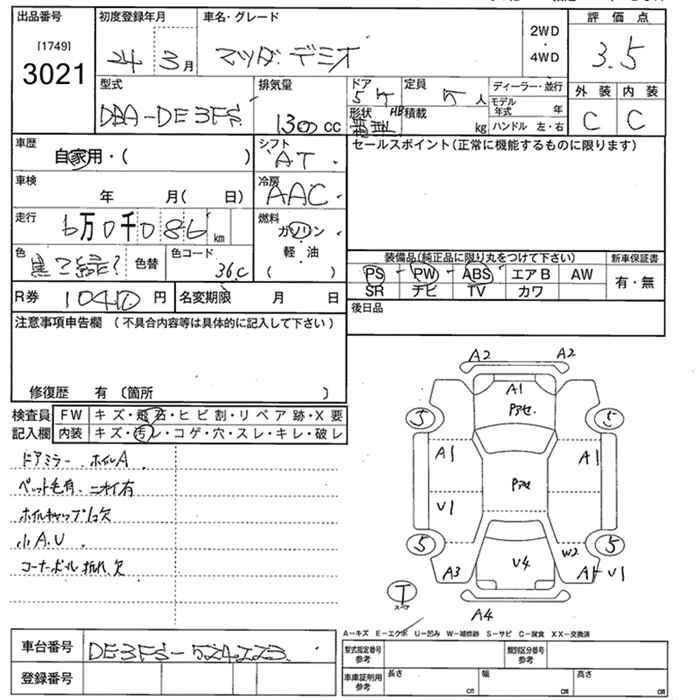 出品番号 初度登録年月 車名・グレード 評価点
[1749]
3021
24 3月 マツダ デミオ 2WD・4WD 3.5
型式 排気量 ドア 定員 ディーラー・並行 外装 内装
DBA-DE3FS 1300cc 5ケ 5人 モデル年式 年 C C
形状 HB 箱型 積載 kg ハンドル 左・右
車歴 シフト セールスポイント(正常に機能するものに限ります)
自家用・( ) AT
車検 冷房
年 月( 日) AAC
走行 燃料
6万0千086km ガソリン
軽・油
( )
色 色替 色コード
36C
装備品(純正品に限り丸をつけて下さい) 新車保証書
PS PW ABS エアB AW 有・無
SR ナビ TV カワ
R券 10410円 名変期限 月 日
後日品
注意事項申告欄(不具合内容等は具体的に記入して下さい)
修復歴 有(箇所 )
検査員 FW キズ・飛石・ヒビ割・リペア跡・X要
記入欄 内装 キズ・汚レ・コゲ・穴・スレ・キレ・破レ
ドアミラー、ホイルA
ペット毛有、ニオイ有
ホイルキャップ1ヶ欠
小A.U
コーナーポール折れ、欠
A2 A2
A1
Pアセ
5 5
A1 A1
Pアセ
U1
5 5
W2
A3 U4 A1-U1
T
スペア
A4
A-キズ E-エクボ U-凹み W-補修跡 S-サビ C-腐食 XX-交換済
車台番号 DE3FS-524223
登録番号
型式指定番号 参考 類別区分番号 参考
車庫証明用 参考 長さ cm 幅 cm 高さ cm